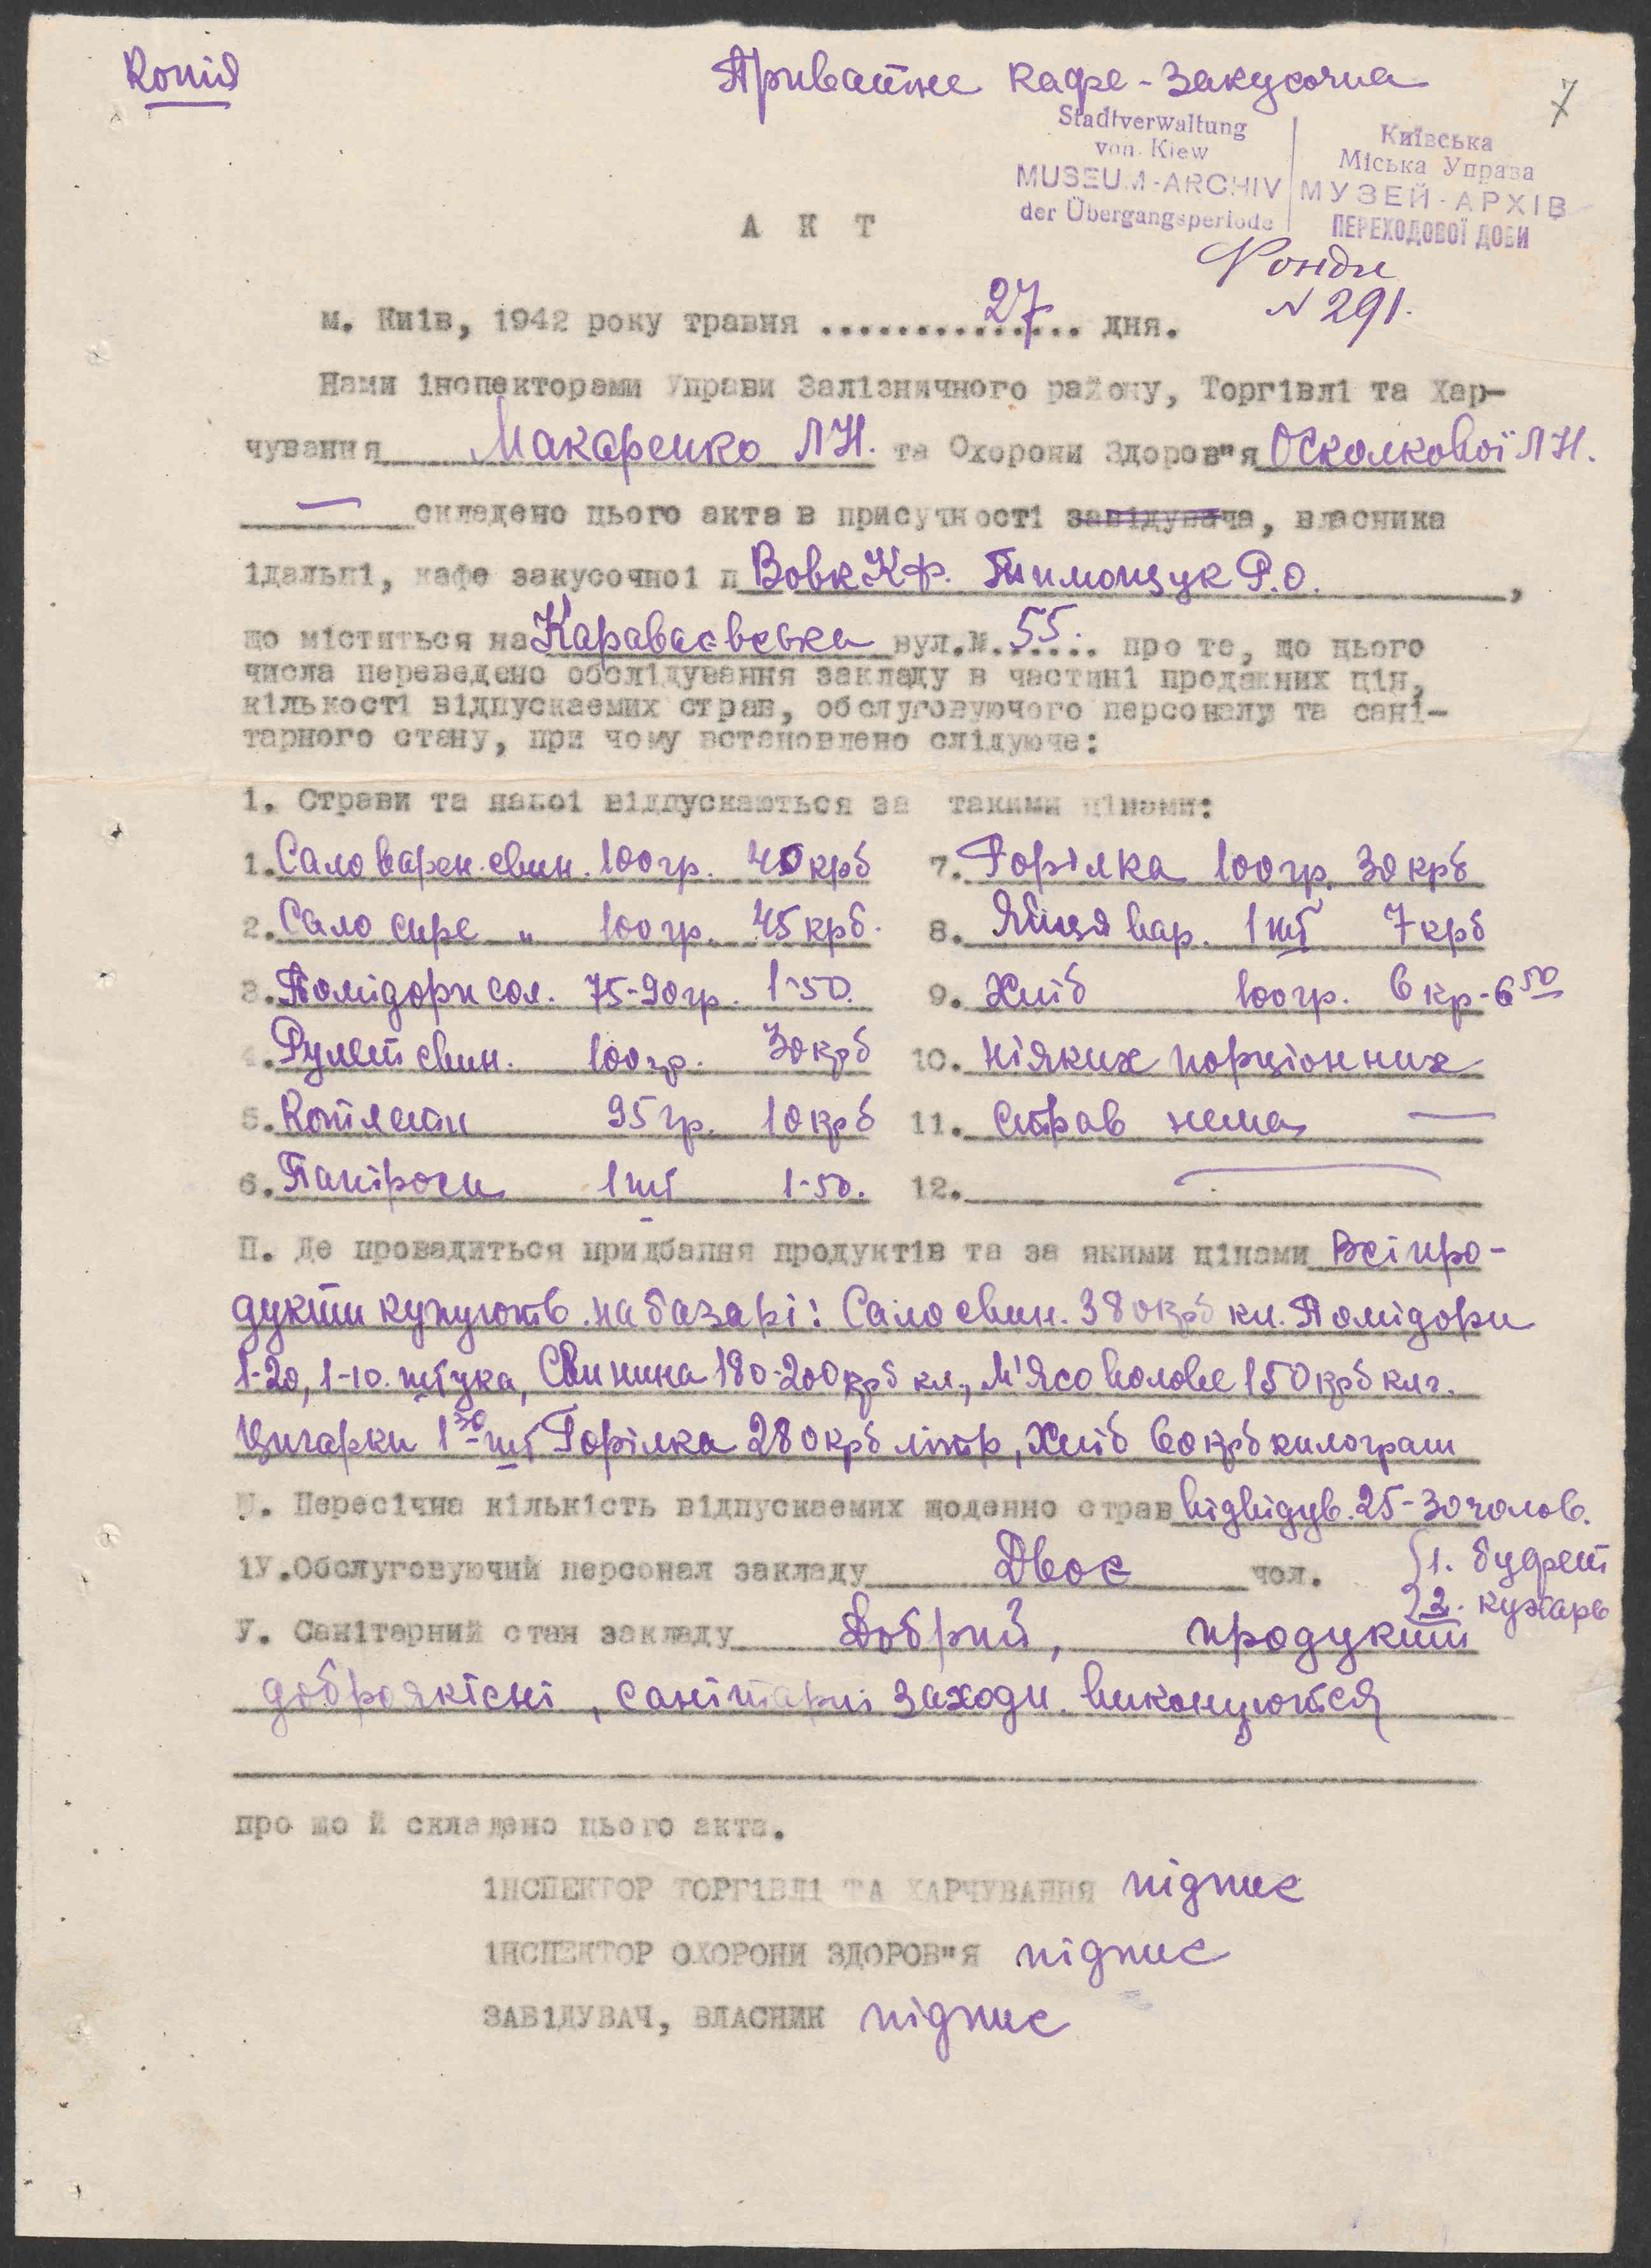 Копія
Приватне кафе-закусочна
7
Stadtverwaltung
von Kiew
MUSEUM-ARCHIV
der Übergangsperiode
Київська
Міська Управа
МУЗЕЙ-АРХІВ
ПЕРЕХОДОВОЇ ДОБИ
Фонди
N 291.
А К Т
м. Київ, 1942 року травня .....27..... дня.
Нами інспекторами Управи Залізничного району, Торгівлі та Хар-
чування Макаренко Л Н. та Охорони Здоров"я Осколкової Л Н.
— складено цього акта в присутності завідувача, власника
їдальні, кафе закусочної п Вовк К Ф. Тимощук Р.О.,
що міститься на Караваєвська вул.№ 55. про те, що цього
числа переведено обслідування закладу в частині продажних цін,
кількості відпускаемих страв, обслуговуючого персоналу та сані-
тарного стану, при чому встановлено слідуюче:
1. Страви та напої відпускаються за такими цінами:
1. Сало варен. свин. 100 гр. 40 крб
2. Сало сире " 100 гр. 45 крб.
3. Помідори сол. 75-90 гр. 1-50.
4. Рулет свин. 100 гр. 30 крб
5. Котлети 95 гр. 10 крб
6. Папіроси 1 шт 1-50.
7. Горілка 100 гр. 30 крб
8. Яйця вар. 1 шт 7 крб
9. Хліб 100 гр. 6 кр-6 50
10. ніяких порціонних
11. страв нема —
12. —
П. Де провадиться придбання продуктів та за якими цінами Всі про-
дукти купують на базарі: Сало свин. 380 крб кл. Помідори
1-20, 1-10. штука, Свинина 180-200 крб кл., М'ясо волове 150 крб клг.
Цигарки 1 30 шт Горілка 280 крб літр, Хліб 60 крб килограм
Ш. Пересічна кількість відпускаемих щоденно страв відвідув. 25-30 чолов.
1У. Обслуговуючий персонал закладу Двоє чол.
1. буфет
2. кухарь
У. Санітарний стан закладу Добрий, продукти
доброякісні, санітарні заходи виконуются
про що й складено цього акта.
ІНСПЕКТОР ТОРГІВЛІ ТА ХАРЧУВАННЯ підпис
ІНСПЕКТОР ОХОРОНИ ЗДОРОВ"Я підпис
ЗАВІДУВАЧ, ВЛАСНИК підпис